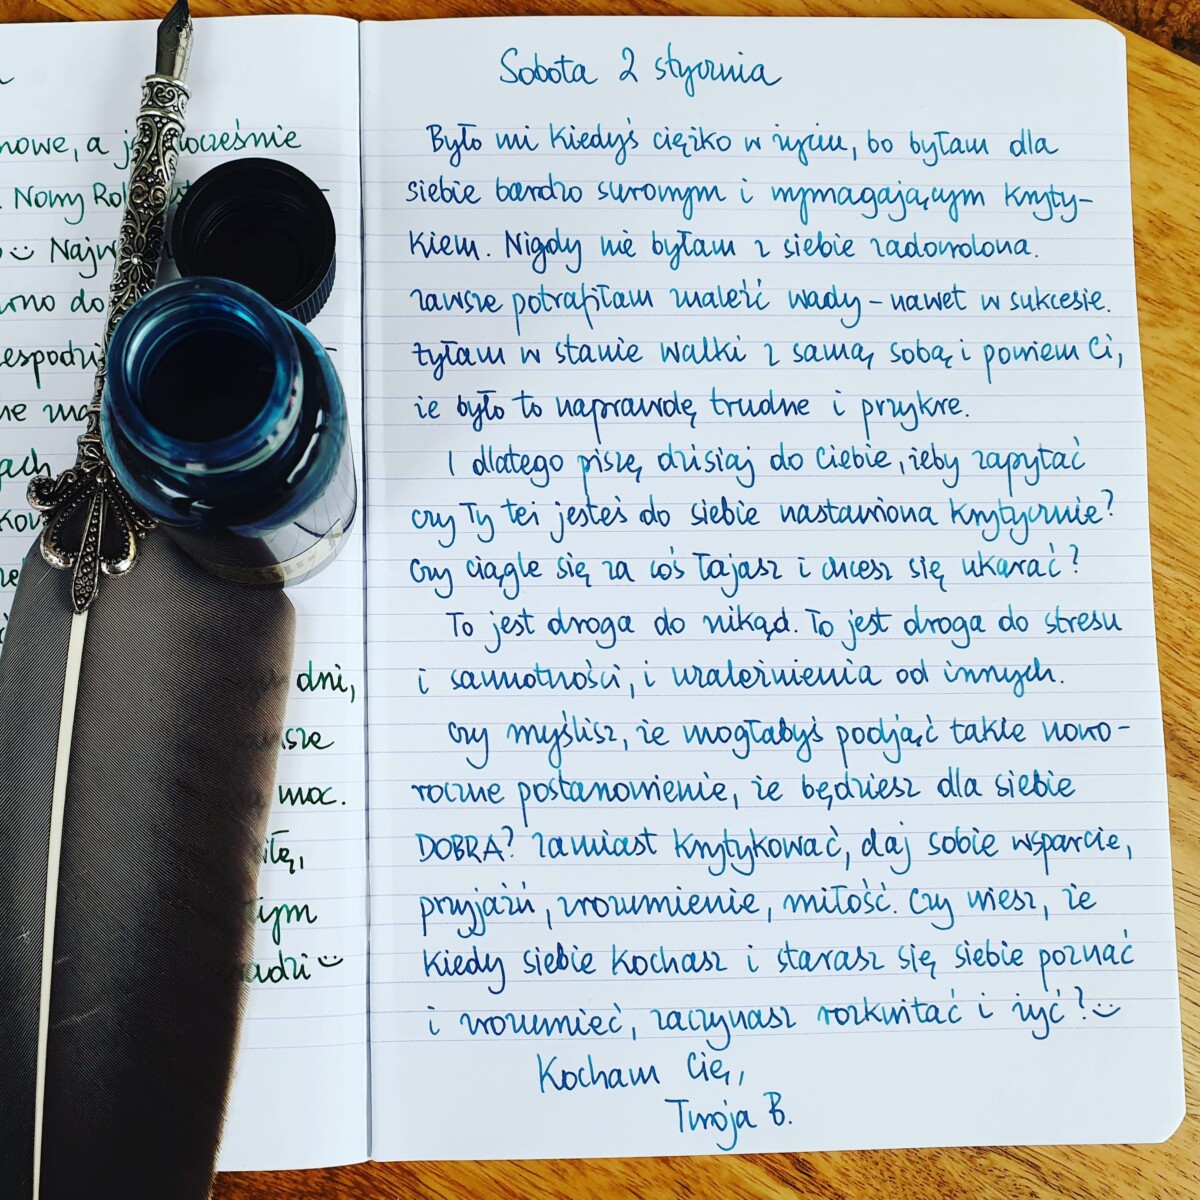 nowe, a
Nowy Rok
Najw
dni,
moc.
Sobota 2 stycznia
Było mi kiedyś ciężko w życiu, bo byłam dla
siebie bardzo surowym i wymagającym kryty-
kiem. Nigdy nie byłam z siebie zadowolona.
Zawsze potrafiłam znaleźć wady – nawet w sukcesie.
Żyłam w stanie walki z samą sobą i powiem Ci,
że było to naprawdę trudne i przykre.
I dlatego piszę dzisiaj do Ciebie, żeby zapytać
czy Ty też jesteś do siebie nastawiona krytycznie?
Czy ciągle się za coś łajasz i chcesz się ukarać?
To jest droga do nikąd. To jest droga do stresu
i samotności, i uzależnienia od innych.
Czy myślisz, że mogłabyś podjąć takie nowo-
roczne postanowienie, że będziesz dla siebie
DOBRA? Zamiast krytykować, daj sobie wsparcie,
przyjaźń, zrozumienie, miłość. Czy wiesz, że
kiedy siebie kochasz i starasz się siebie poznać
i zrozumieć, zaczynasz rozkwitać i żyć? :)
Kocham Cię,
Twoja B.